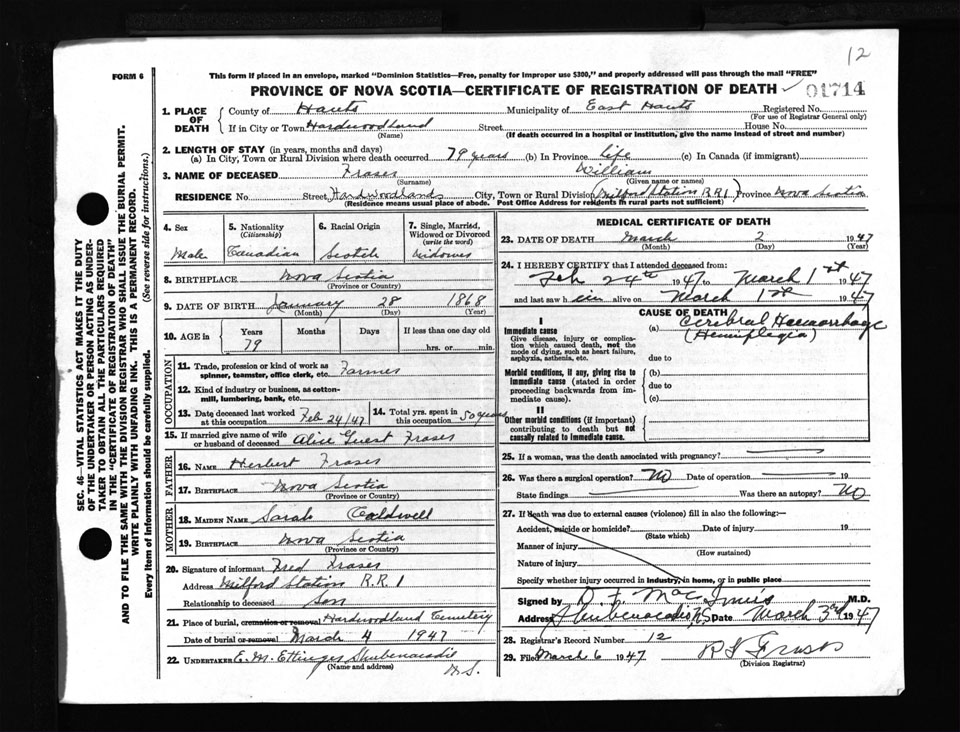 12
FORM 6
This form if placed in an envelope, marked "Dominion Statistics—Free, penalty for improper use $300," and properly addressed will pass through the mail "FREE"
PROVINCE OF NOVA SCOTIA—CERTIFICATE OF REGISTRATION OF DEATH
01714
1. PLACE OF DEATH
County of Hants Municipality of East Hants Registered No.
(For use of Registrar General only)
If in City or Town Hardwoodland Street House No.
(Name) (If death occurred in a hospital or institution, give the name instead of street and number)
2. LENGTH OF STAY (in years, months and days)
(a) In City, Town or Rural Division where death occurred 79 years (b) In Province life (c) In Canada (if immigrant)
3. NAME OF DECEASED Fraser William
(Surname) (Given name or names)
RESIDENCE No. Street Hardwoodlands City, Town or Rural Division (Milford Station R.R.1) Province Nova Scotia
(Residence means usual place of abode. Post Office Address for residents in rural parts not sufficient)
4. Sex
Male
5. Nationality (Citizenship)
Canadian
6. Racial Origin
Scotch
7. Single, Married, Widowed or Divorced (write the word)
Widower
8. BIRTHPLACE Nova Scotia
(Province or Country)
9. DATE OF BIRTH January 28 1868
(Month) (Day) (Year)
10. AGE in Years Months Days If less than one day old
79 hrs. or min.
OCCUPATION
11. Trade, profession or kind of work as spinner, teamster, office clerk, etc. Farmer
12. Kind of industry or business, as cotton-mill, lumbering, bank, etc.
13. Date deceased last worked at this occupation Feb 24/47
14. Total yrs. spent in this occupation 50 years
15. If married give name of wife or husband of deceased Alice Guest Fraser
FATHER
16. NAME Herbert Fraser
17. BIRTHPLACE Nova Scotia
(Province or Country)
MOTHER
18. MAIDEN NAME Sarah Caldwell
19. BIRTHPLACE Nova Scotia
(Province or Country)
20. Signature of informant Fred Fraser
Address Milford Station R.R 1
Relationship to deceased Son
21. Place of burial, cremation or removal Hardwoodland Cemetery
Date of burial or removal March 4 1947
22. UNDERTAKER E.M. Ettinger Shubenacadie
(Name and address) N.S.
MEDICAL CERTIFICATE OF DEATH
23. DATE OF DEATH March 2 1947
(Month) (Day) (Year)
24. I HEREBY CERTIFY that I attended deceased from:
Feb 24th 1947 to March 1st 1947
and last saw him alive on March 1st 1947
CAUSE OF DEATH
I
Immediate cause
Give disease, injury or complication which caused death, not the mode of dying, such as heart failure, asphyxia, asthenia, etc.
(a) Cerebral Haemorrhage
(Hemiplegia)
due to
Morbid conditions, if any, giving rise to immediate cause (stated in order proceeding backwards from immediate cause).
(b)
due to
(c)
II
Other morbid conditions (if important) contributing to death but not causally related to immediate cause.
25. If a woman, was the death associated with pregnancy?
26. Was there a surgical operation? No Date of operation 19
State findings Was there an autopsy? No
27. If death was due to external causes (violence) fill in also the following:—
Accident, suicide or homicide? Date of injury 19
(State which)
Manner of injury
(How sustained)
Nature of injury
Specify whether injury occurred in industry, in home, or in public place
Signed by D. F. MacInnis M.D.
Address Shubenacadie, N.S. Date March 3rd 1947
28. Registrar's Record Number 12
29. Filed March 6 1947
(Division Registrar)
SEC. 46—VITAL STATISTICS ACT MAKES IT THE DUTY
OF THE UNDERTAKER OR PERSON ACTING AS UNDER-
TAKER TO OBTAIN ALL THE PARTICULARS REQUIRED
IN THE "CERTIFICATE OF REGISTRATION OF DEATH"
AND TO FILE THE SAME WITH THE DIVISION REGISTRAR WHO SHALL ISSUE THE BURIAL PERMIT.
WRITE PLAINLY WITH UNFADING INK. THIS IS A PERMANENT RECORD.
Every item of information should be carefully supplied. (See reverse side for instructions.)